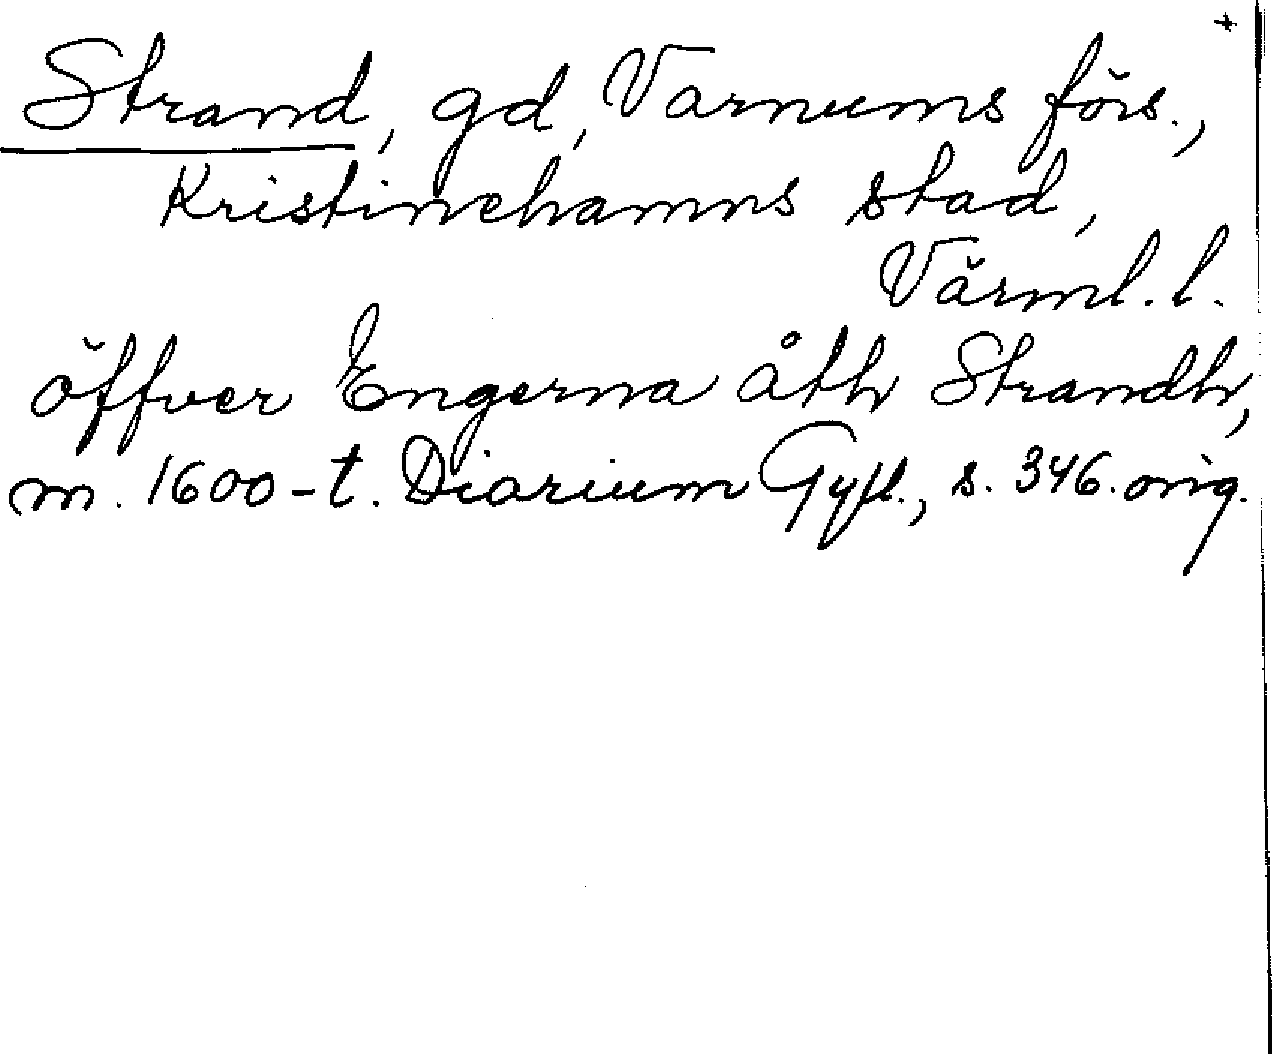 +
Strand, gd, Varnums förs.,
Kristinehamns stad,
Värml. l.
öffver Engerna åth Strandh,
m. 1600-t. Diarium Gyll., s. 346. orig.